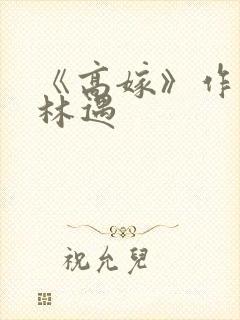 《高嫁》作
林遇
祝允兒